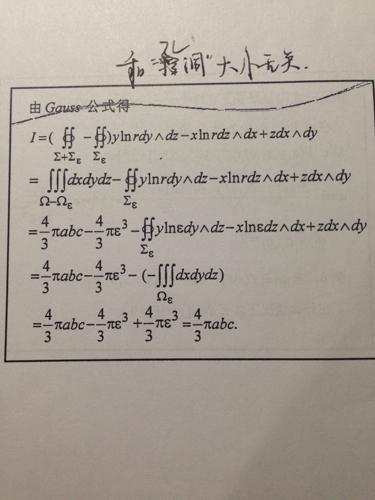 和"孔洞"大小无关.
由 Gauss 公式得
I=( ∯ − ∯ )ylnrdy∧dz−xlnrdz∧dx+zdx∧dy
Σ+Σε Σε
= ∭dxdydz− ∯ylnrdy∧dz−xlnrdz∧dx+zdx∧dy
Ω−Ωε Σε
=4/3 πabc−4/3 πε³−∯ylnεdy∧dz−xlnεdz∧dx+zdx∧dy
Σε
=4/3 πabc−4/3 πε³−(−∭dxdydz)
Ωε
=4/3 πabc−4/3 πε³+4/3 πε³=4/3 πabc.